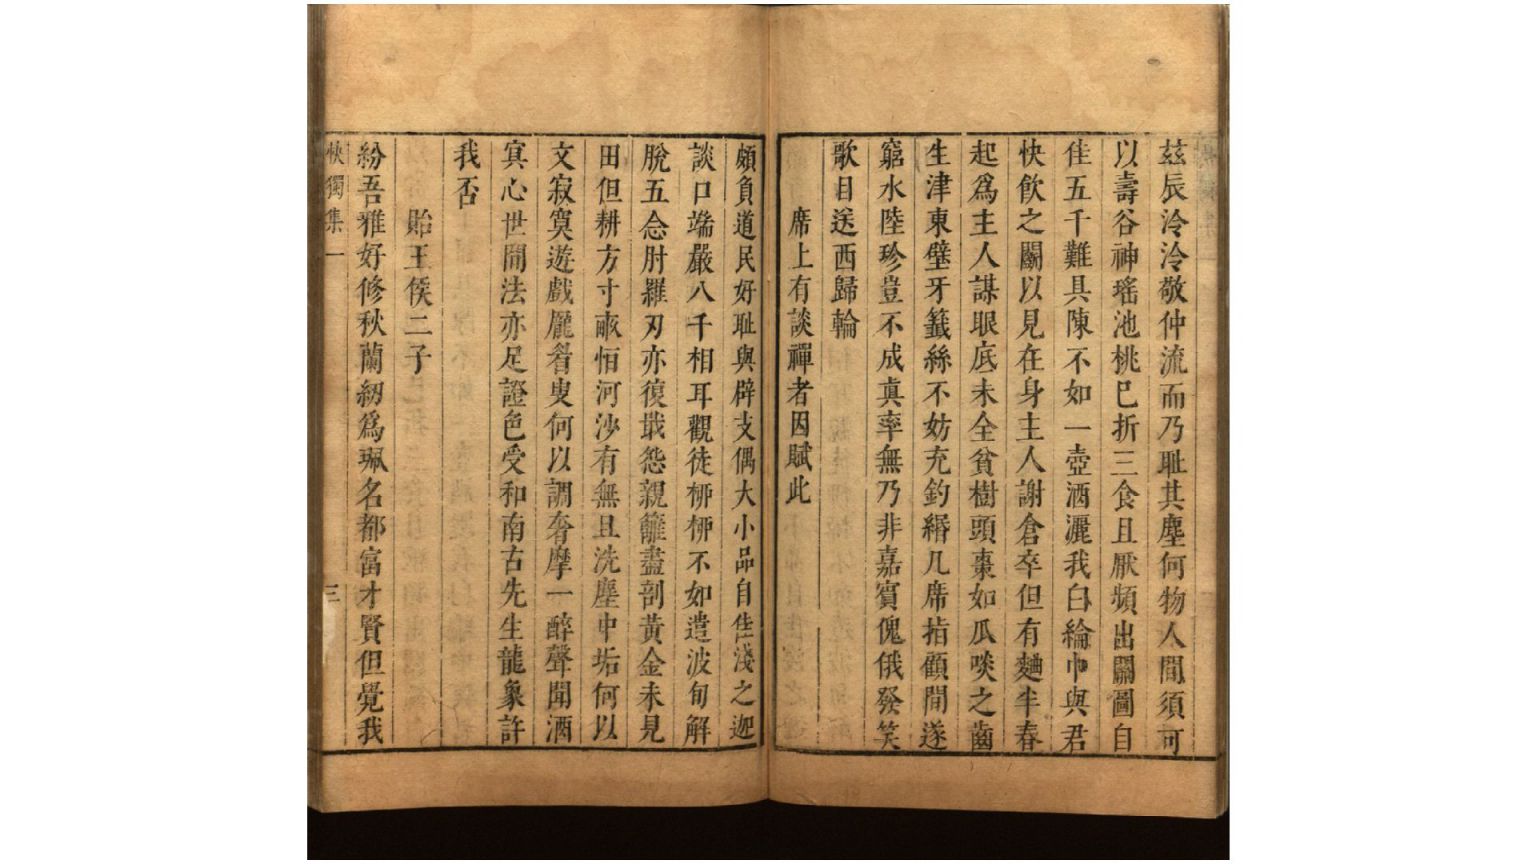 茲辰泠泠敬仲流而乃耻其塵何物人間須可
以壽谷神瑤池桃已折三食且厭頻出關圖自
佳五千難具陳不如一壺酒灑我白綸巾與君
快飲之關以見在身主人謝倉卒但有麯半春
起爲主人謀眼底未全貧樹頭棗如瓜啖之齒
生津東壁牙籤絲不妨充釣緡几席指顧間遂
窮水陸珍豈不成真率無乃非嘉賓傀俄發笑
歌日送西歸輪
席上有談禪者因賦此
頗負道民好耻與辟支偶大小品自佳淺之迦
談口端嚴八千相耳觀徒栁栁不如遣波旬解
脫五忩肘羅刃亦復戢怨親籬盡剖黃金未見
田但耕方寸畝恒河沙有無且洗塵中垢何以
文寂寞遊戲龐眘叟何以調奢摩一醉聲聞酒
寘心世間法亦足證色受和南古先生龍象許
我否
貽王侯二子
紛吾雅好修秋蘭紉爲珮名都富才賢但覺我
快獨集一
三